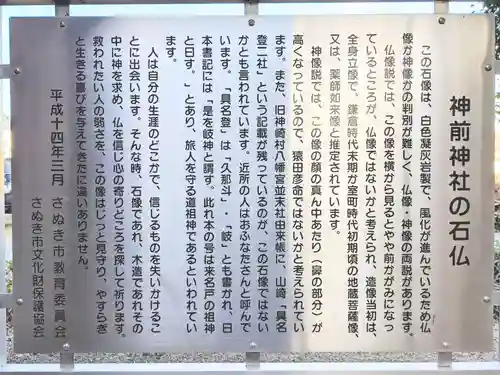 神前神社の石仏
この石像は、白色凝灰岩製で、風化が進んでいるため仏
像か神像かの判別が難しく、仏像・神像の両説があります。
仏像説では、この像を横から見るとやや前かがみになっ
ているところが、仏像ではないかと考えられ、造像当初は、
全身立像で、鎌倉時代末期か室町時代初期頃の地蔵菩薩像、
又は、薬師如来像と推定されています。
神像説では、この像の顔の真ん中あたり（鼻の部分）が
高くなっているので、猿田彦命ではないかと考えられてい
ます。また、旧神崎村八幡宮並末社由来帳に、山崎「具名
登二社」という記載が残っているのが、この石像ではない
かとも言われています。近所の人はおふなたさんと呼んで
います。「具名登」は「久那斗」・「岐」とも書かれ、日
本書記には「是を岐神と謂す。此れ本の号は来名戸の祖神
と曰す。」とあり、旅人を守る道祖神であるといわれてい
ます。
人は自分の生涯のどこかで、信じるものを失いかけるこ
とに出会います。そんな時、石像であれ、木造であれその
中に神を求め、仏を信じ心の寄りどころを探して祈ります。
救われたい人の弱さを、この像はじっと見守り、やすらぎ
と生きる喜びを与えてきたに違いありません。
平成十四年三月
さぬき市教育委員会
さぬき市文化財保護協会